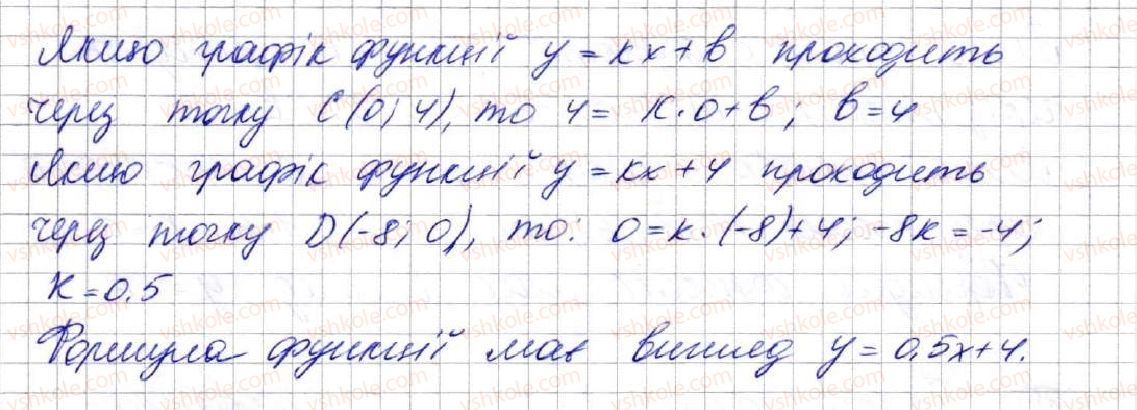 Якщо графік функції y = kx + b проходить
через точку C(0; 4), то 4 = k · 0 + b; b = 4
Якщо графік функції y = kx + 4 проходить
через точку D(-8; 0), то: 0 = k · (-8) + 4; -8k = -4;
k = 0,5
Формула функції має вигляд y = 0,5x + 4.